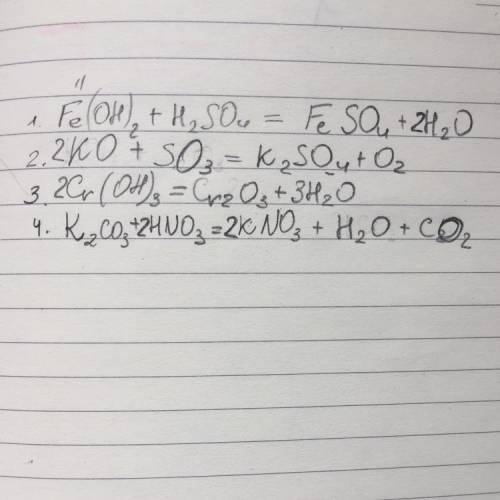 II
1. Fe(OH)₂ + H₂SO₄ = FeSO₄ + 2H₂O
2. 2KO + SO₃ = K₂SO₄ + O₂
3. 2Cr(OH)₃ = Cr₂O₃ + 3H₂O
4. K₂CO₃ + 2HNO₃ = 2KNO₃ + H₂O + CO₂